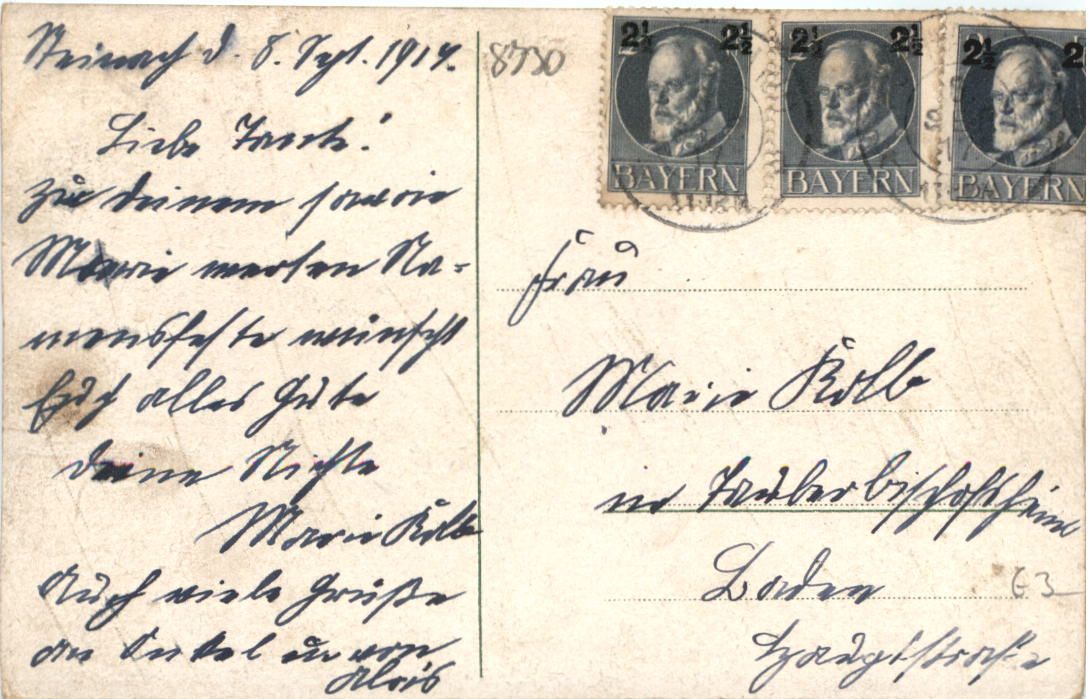 Steinach d. 8. Sept. 1917.
Liebe Tante!
zu deinem sowie
Marie werten Na-
mensfeste wünscht
Euch alles Gute
deine Nichte
Marie Kolb
Auch viele Grüße
an Onkel u von
Alois
8730
2½ 2½ 2½ 2½ 2½ 2
BAYERN BAYERN BAYERN
Frau
Marie Kolb
in Tauberbischofsheim
Baden
63
Hauptstraße